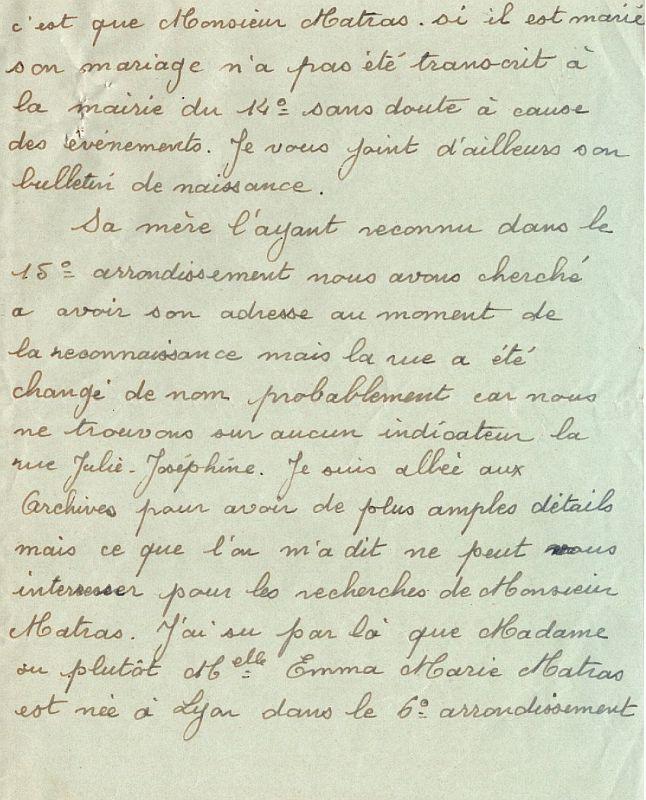 c'est que Monsieur Matras. si il est marié
son mariage n'a pas été transcrit à
la mairie du 14º sans doute à cause
des événements. Je vous joint d'ailleurs son
bulletin de naissance.
Sa mère l'ayant reconnu dans le
15º arrondissement nous avons cherché
a avoir son adresse au moment de
la reconnaissance mais la rue a été
changé de nom probablement car nous
ne trouvons sur aucun indicateur la
rue Julie-Joséphine. Je suis allée aux
Archives pour avoir de plus amples détails
mais ce que l'on m'a dit ne peut vous
interresser pour les recherches de Monsieur
Matras. J'ai su par là que Madame
ou plutôt Melle Emma Marie Matras
est née à Lyon dans le 6º arrondissement